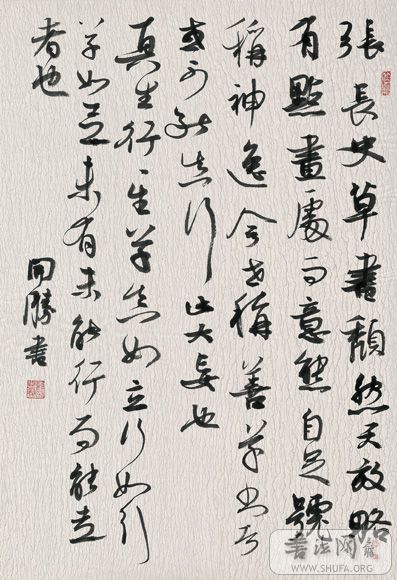 張長史草書頹然天放略
有點畫處而意態自足號
稱神逸今世稱善草書者
或不能真行此大妄也
真生行々生草真如立行如行
草如走未有未能行而能走
者也
開勝書
書法网
WWW.SHUFA.ORG